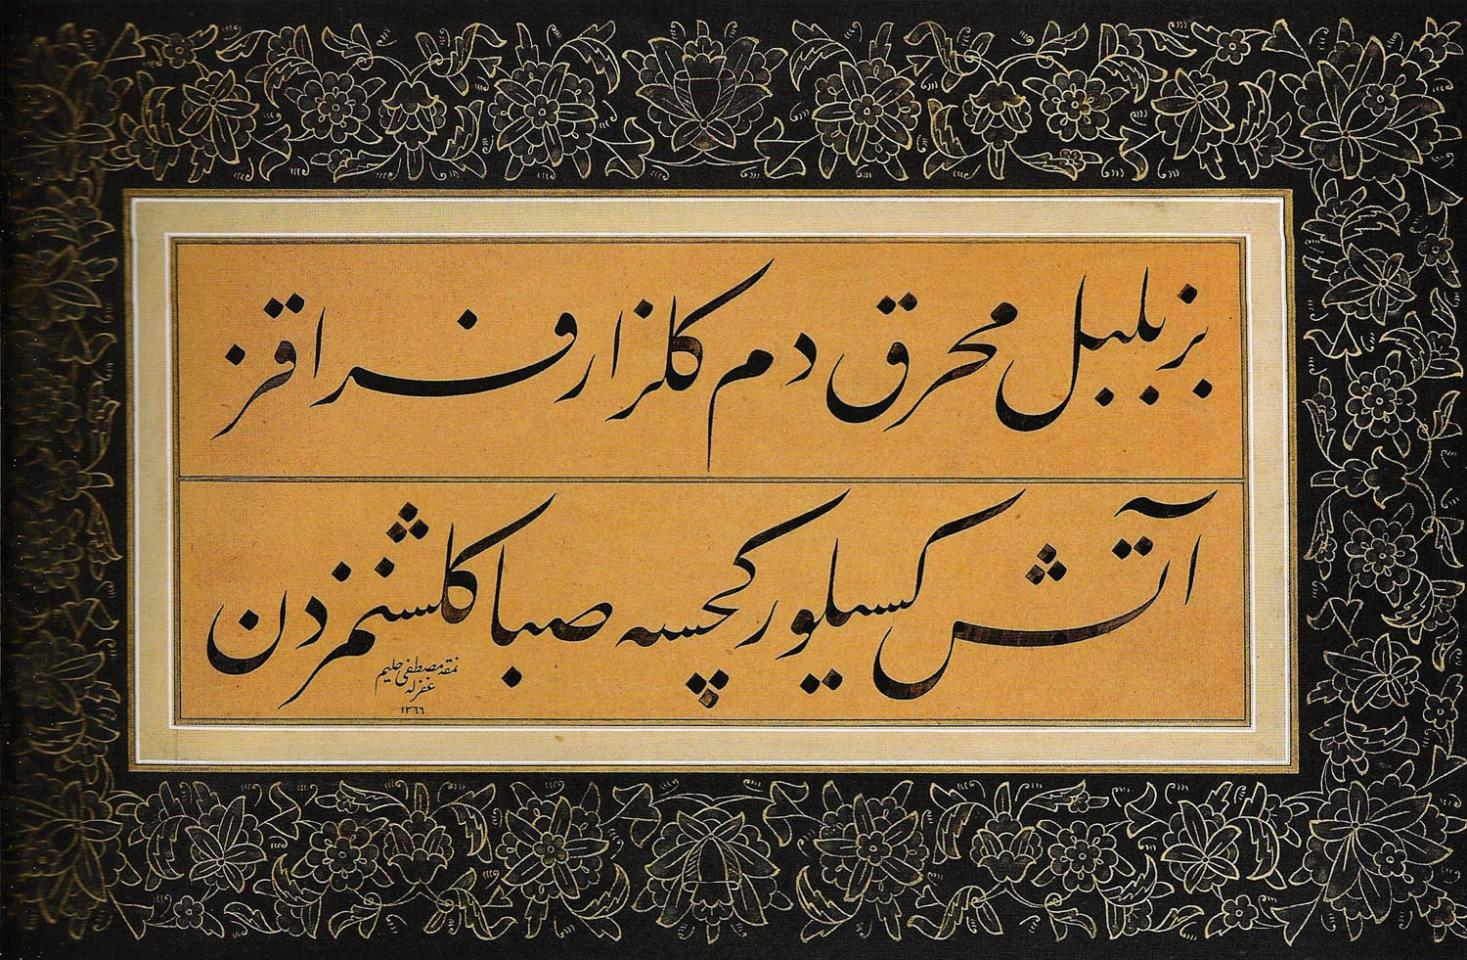 بز بلبل محرق دم کلزار فراقز
آتش کسیلور کچسه صبا کلشنمزدن
نمقه مصطفی حلیم
غفرله
١٣٦٦